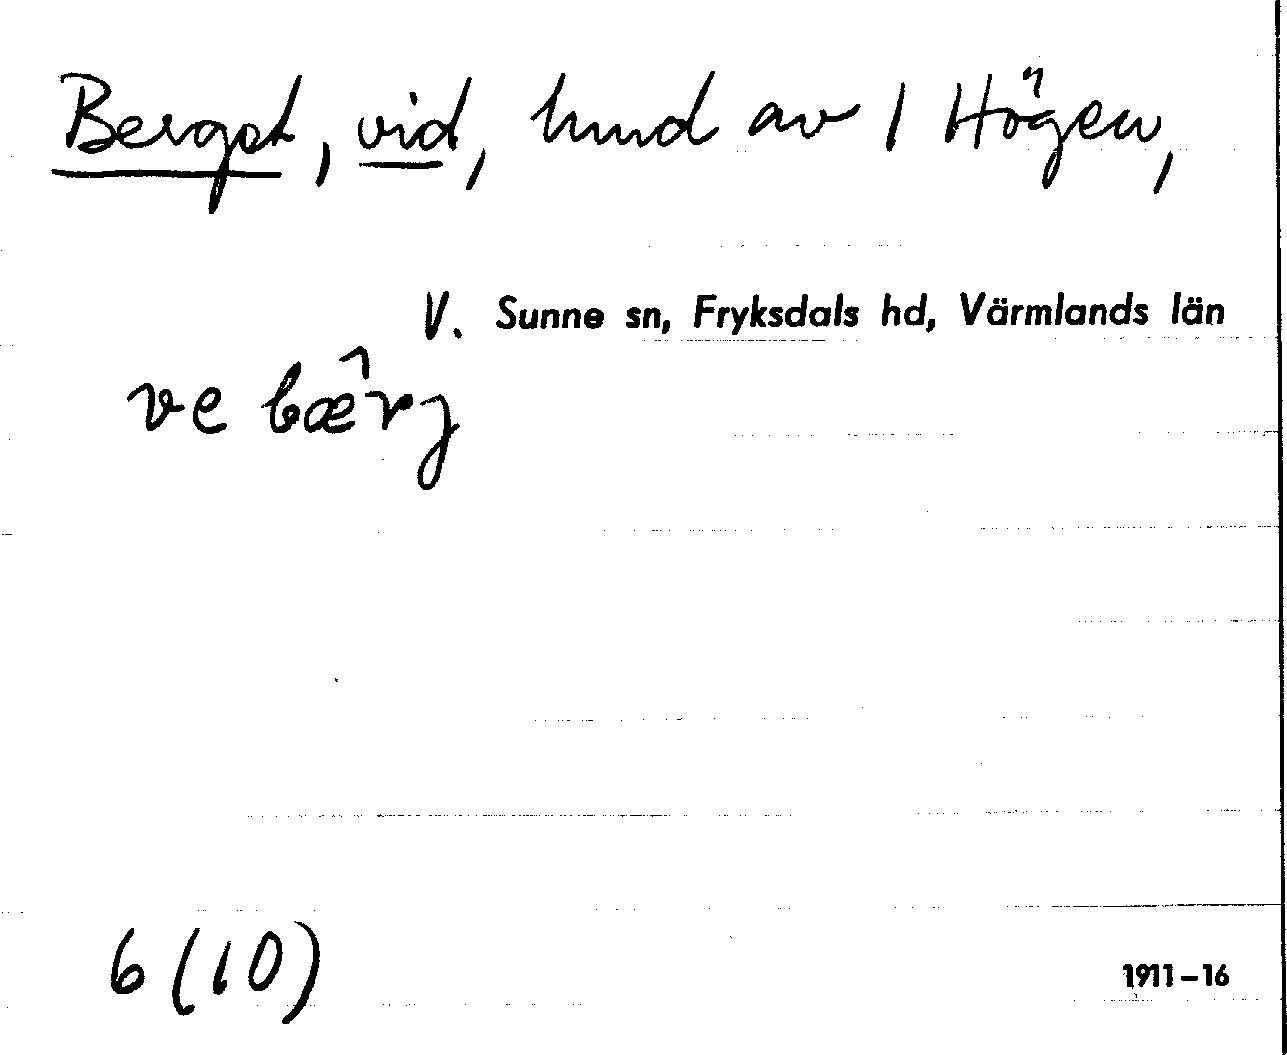 Berget, vid, hmd av 1 Högen,
V. Sunne sn, Fryksdals hd, Värmlands län
ve bærj
6 (10)
1911–16